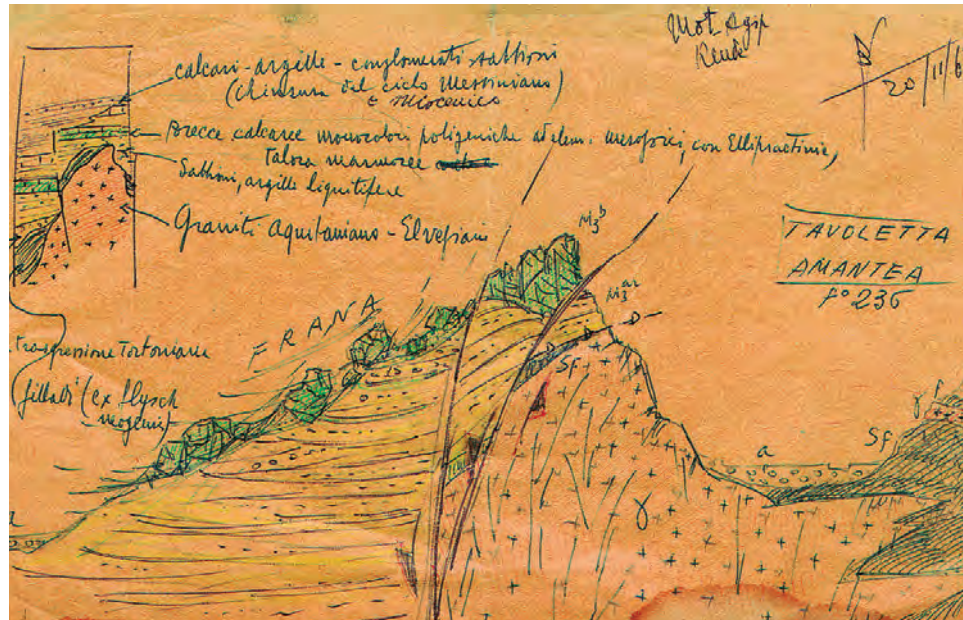 Mot Agip
20/11/6
calcari-argille-conglomerati-sabbioni
(chiusura del ciclo Messiniano
e Miocenico
Brecce calcaree monocolori poligeniche ad elem. mesozoici, con Ellipsactinie,
talora marmoree
Sabbioni, argille lignitifere
Graniti Aquitaniano - Elveziani
TAVOLETTA
AMANTEA
F° 236
M3b
M3ar
FRANA
trasgressione Tortoniana
filladi (ex flysch
Sf
D
D
a
Sf
γ
γ